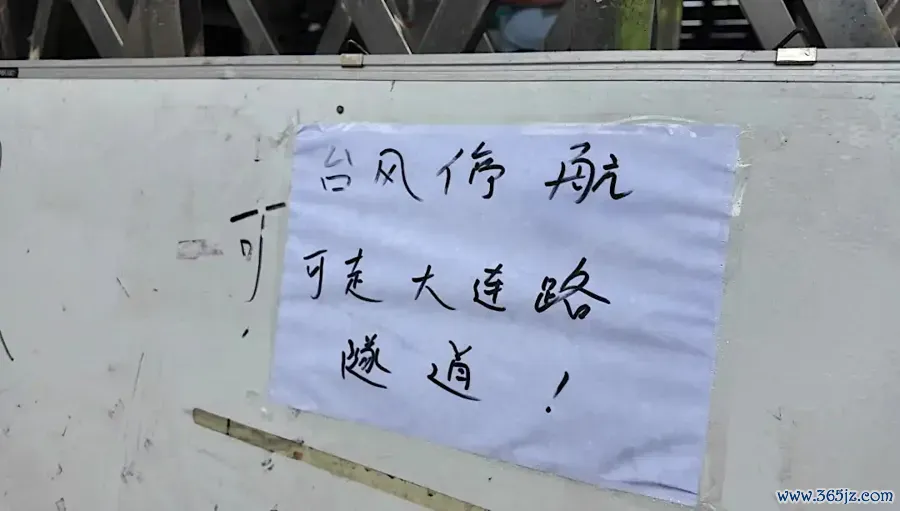 台风停航
可
可走大连路
隧道！
www.365jz.com